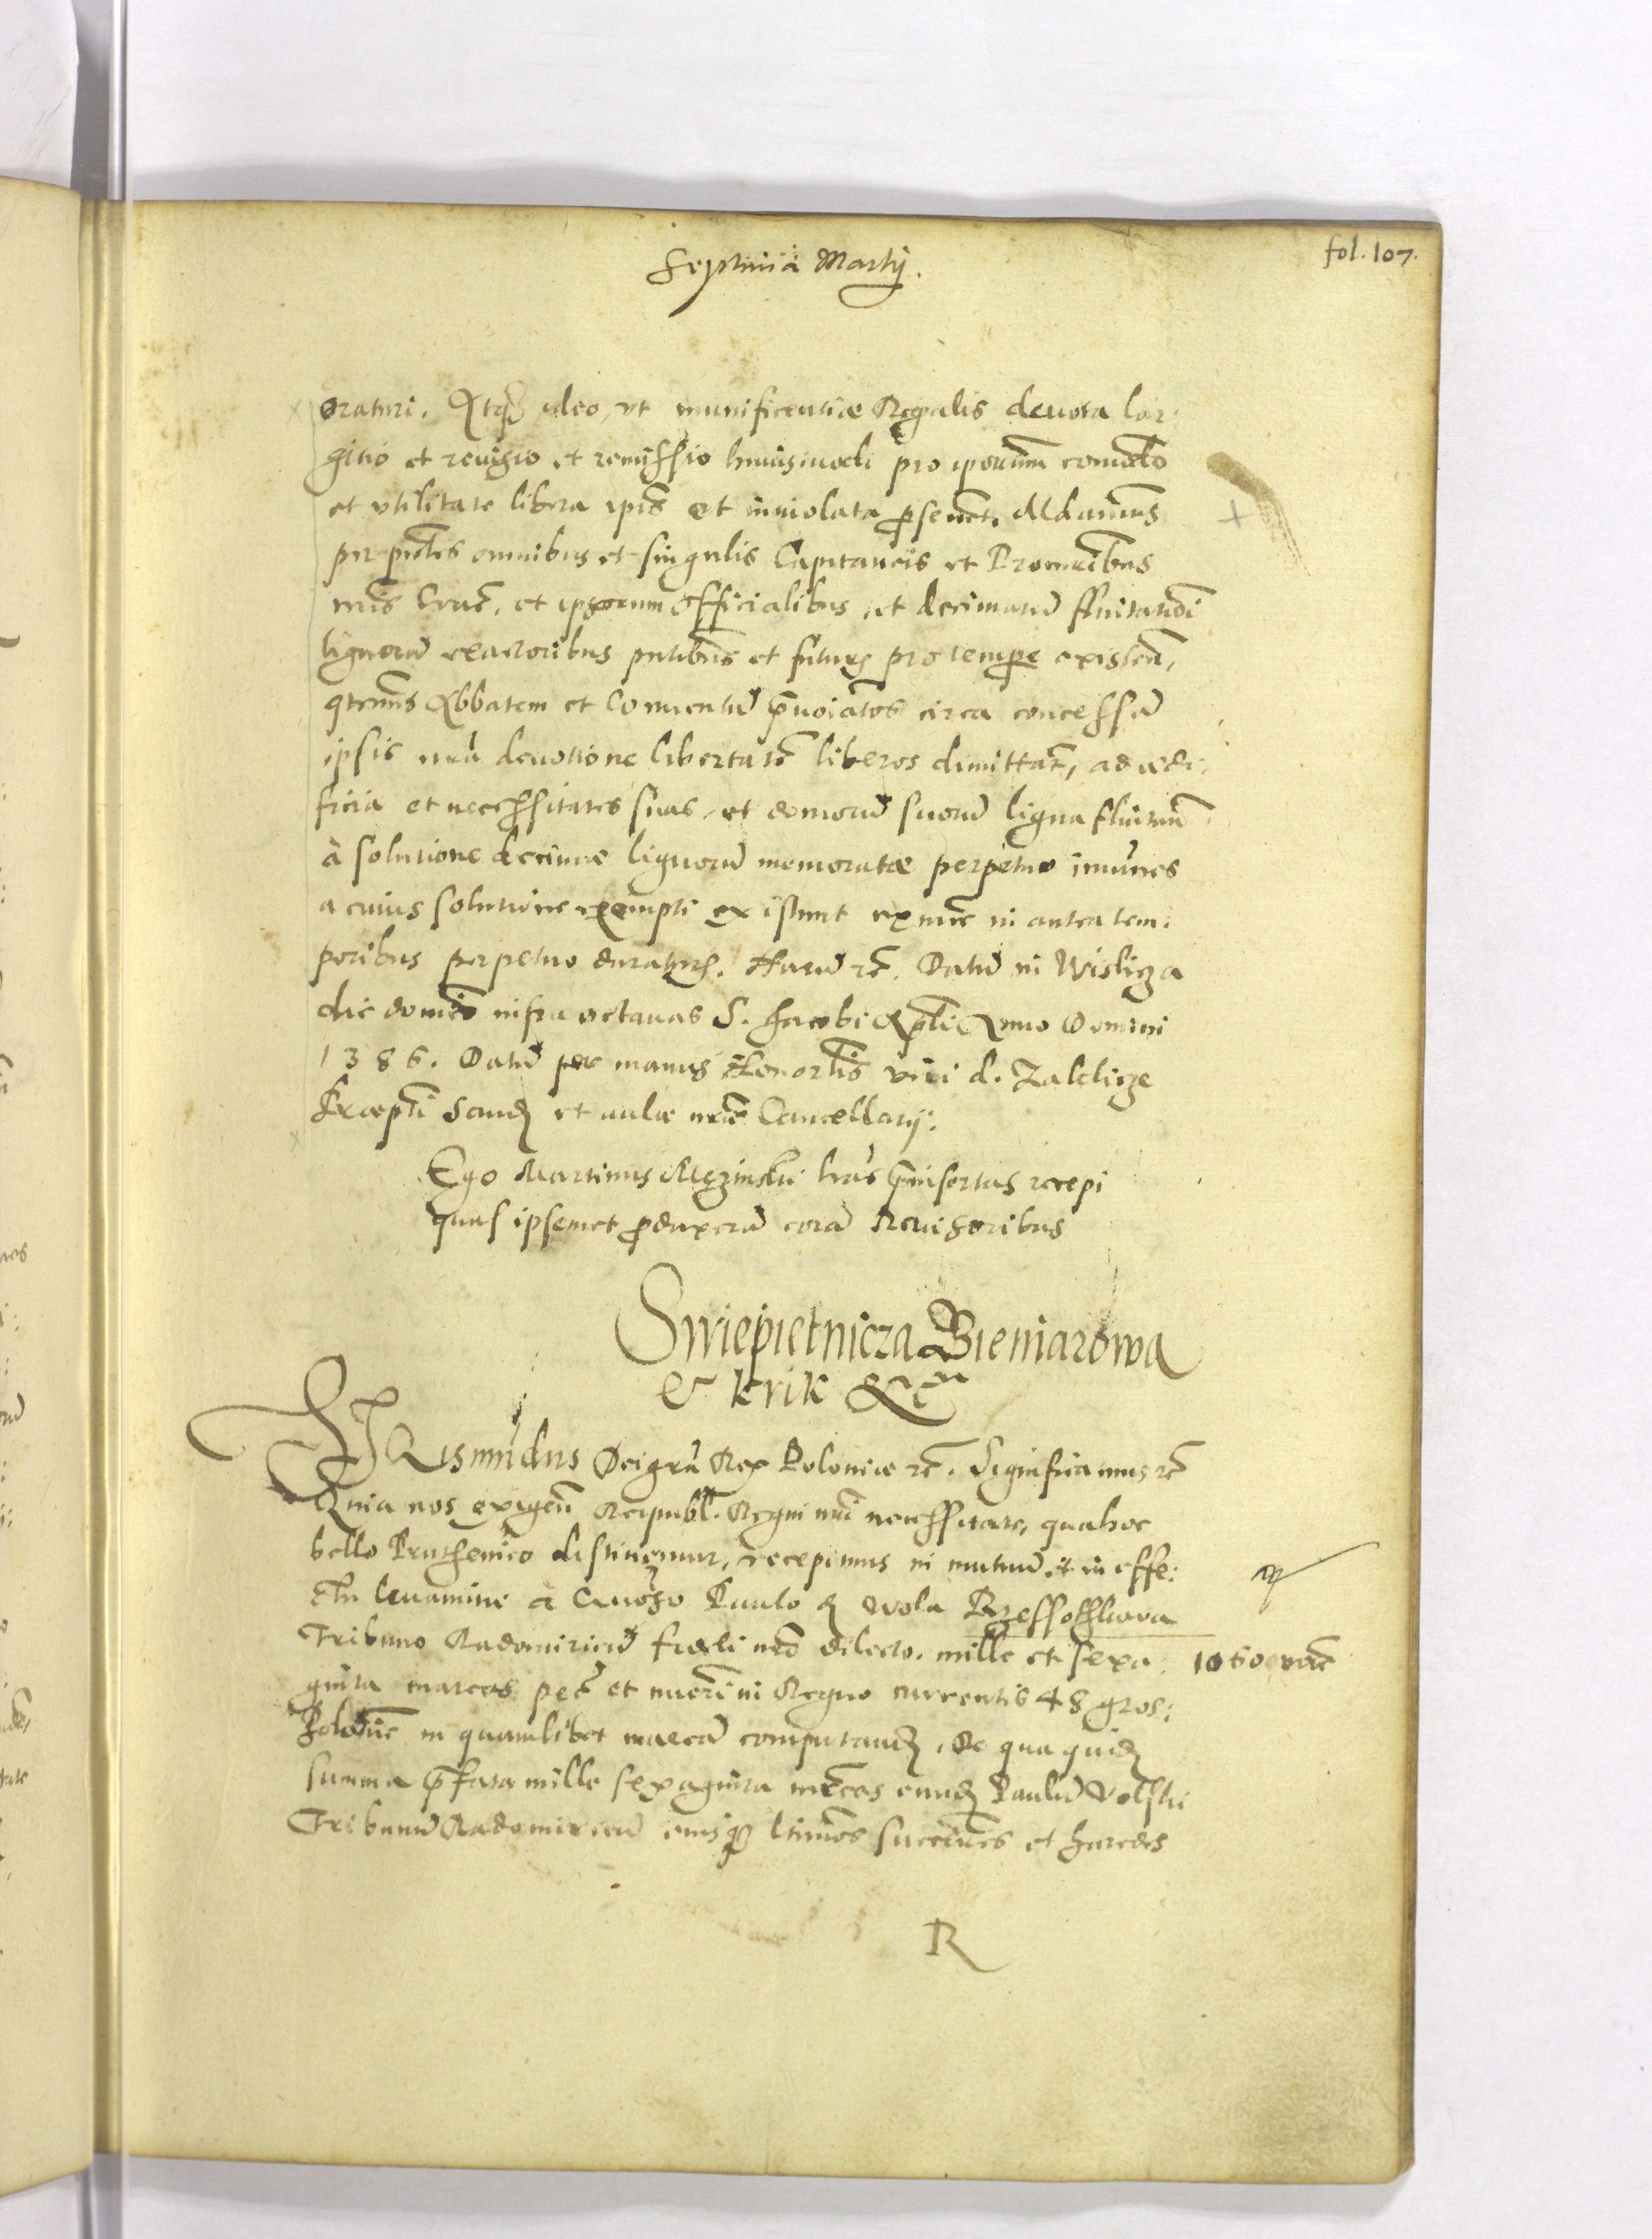 fol. 107.
Septima Martij.
oraturi. Atq3 ideo, vt munificentiae Regalis deuota lar:
gitio et reuisio et remissio huiusmodi pro ipsorum comodo
et vtilitate libera ipis et inuiolata pseueret. Mdamus
per pntes omnibus et singulis Capitaneis et Procuribus
nris Crac. et ipsorum officialibus, et decimarū fluitandi
lignorū exactoribus pntibus et futuris pro tempore existen,
qtenus Abbatem et Conuentū pnoiatos circa concessā
ipsis nrā deuotione libertatē liberos dimittat, ad aedi:
ficia et necessitates suas, et domorū suorū ligna fluitan
à solutione decimae lignorū memoratae perpetuo imunes
a cuius solutione exempti existunt ex nunc in antea tem:
poribus perpetuo duraturis. Harū rc. Datū in Wisliza
die domico infra octauas S. Jacobi Apli Anno Domini
1386. Datū per manus Honorlis viri d. Zaklicze
Praepti Sand et aulae nrae Cancellarij:
Ego Martinus Męzinski lras pinsertas recepi
quas ipsemet pduxerā corā Reuisoribus
Swiepietnicza Bieniarowa
& krik &c
SIGismūdus Dei grā Rex Poloniae rc. Significamus rc
Quia nos exigen Reipubl. Regni nri necessitate, qua hoc
bello Pruthenico distinemur, recepimus in mutuū et in effe:
ctu leuamine à Gnoso Paulo de Wola
Tribuno Radomiricū fideli nro dilecto. mille et sexa: 1060 mrc
ginta marcas pec et nueri in Regno currentis 48 gros:
Polonic in quamlibet marcā computand. De qua quid
summa pfata mille sexaginta marcas eund Paulū Volski
Tribunū Radomircū eiusq3 ltimos succeures et haredes
R